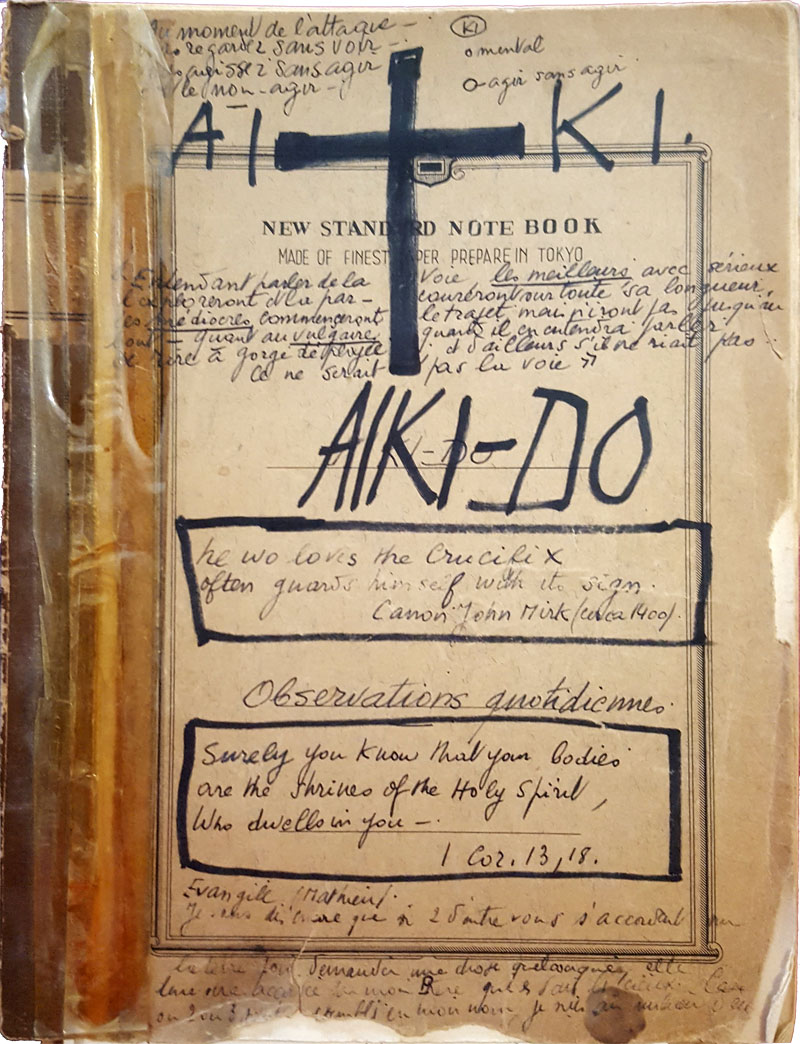 moment de l'attaque –
regardez sans voir –
agissez sans agir
le non-agir –
KI
o mental
o agir sans agir
AI KI.
NEW STANDARD NOTE BOOK
MADE OF FINEST PAPER PREPARE IN TOKYO
Entendant parler de la voie les meilleurs avec sérieux
l'exploreront d'la par- courront sur toute sa longueur
les médiocres commenceront le trajet mais n'iront pas jusqu'au
bout – quant au vulgaire, quand il en entendra parler
rire à gorge déployée et d'ailleurs s'il ne riait pas
ce ne serait pas la voie »
AIKI-DO
KI-DO
he wo loves the Crucifix
often guards himself with its sign.
Canon John Mirk (circa 1400).
Observations quotidiennes.
Surely you know that your bodies
are the shrines of the Holy Spirit,
Who dwells in you –.
1 Cor. 13,18.
Evangile (Mathieu).
Je vous déclare que si 2 d'entre vous s'accordent
la terre pour demander une chose quelconque, elle
leur sera mon Père qui
ou 3 en mon nom, je suis au milieu d'eux